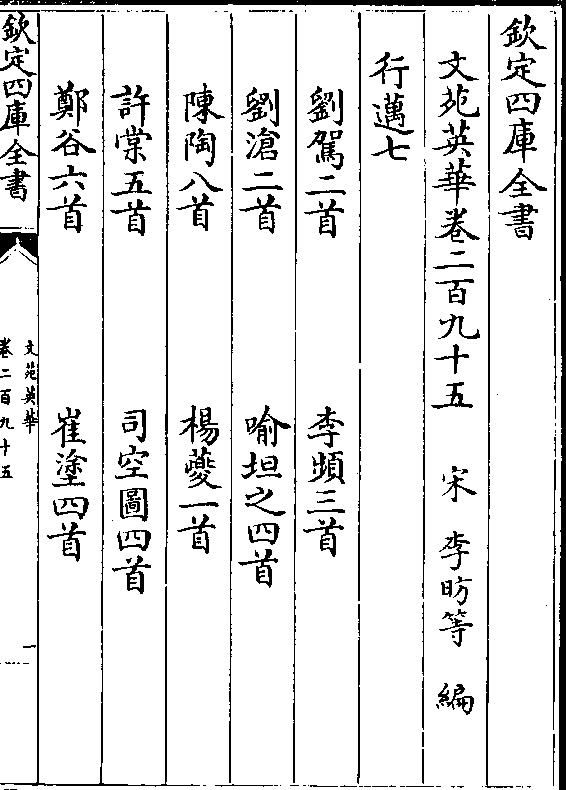 欽定四庫全書
文苑英華卷二百九十五 宋 李昉等 編
行邁七
劉駕二首 李頻三首
劉滄二首 喻坦之四首
陳陶八首 楊夔一首
許棠五首 司空圖四首
鄭谷六首 崔塗四首
欽定四庫全書
文苑英華
卷二百九十五
一